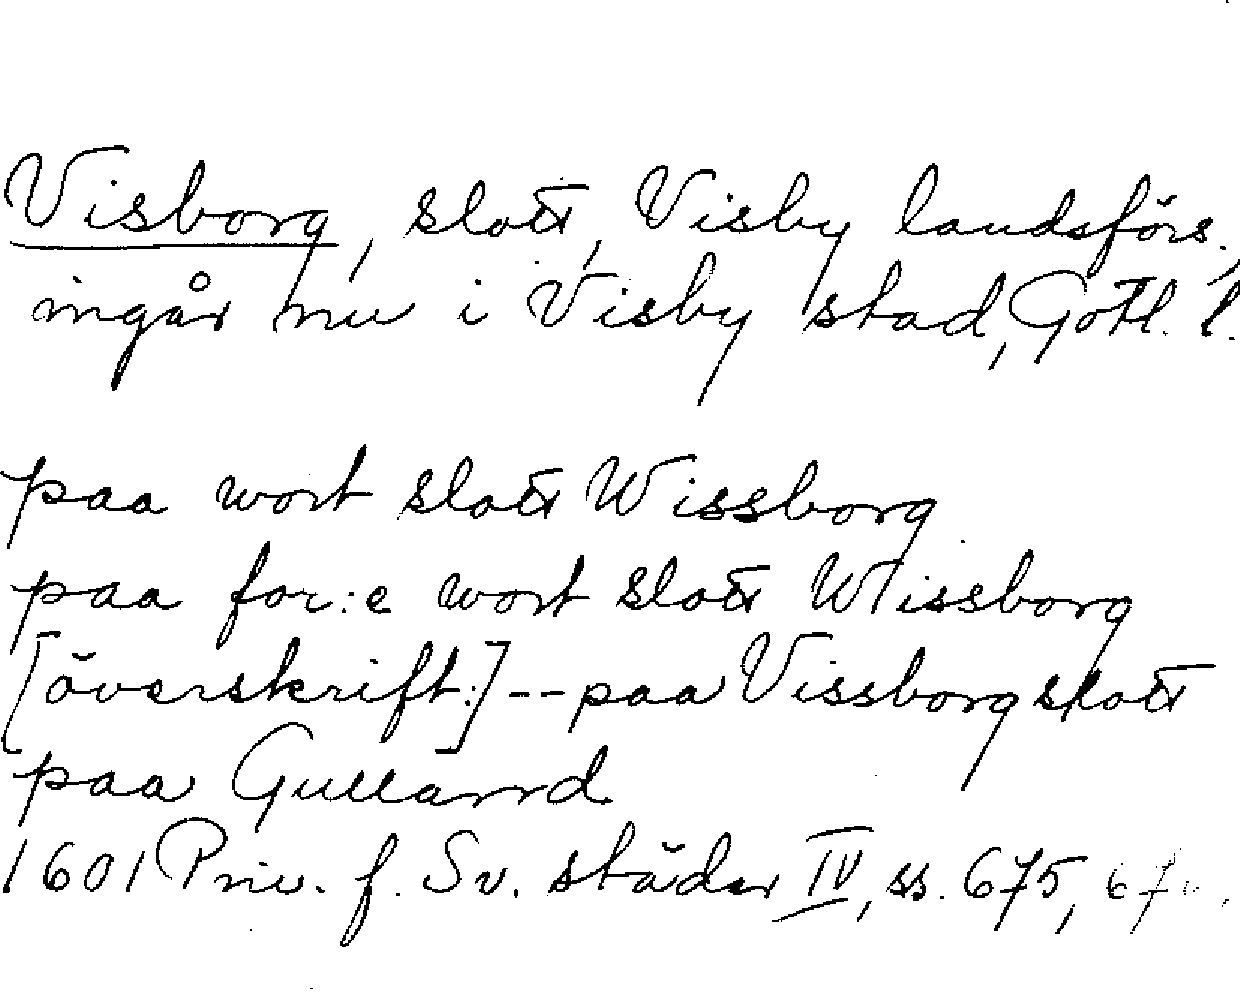 Visborg, slott, Visby landsförs.,
ingår nu i Visby stad, Gotl. l.
paa wort slott Wissborg
paa for:e wort slott Wissborg
[överskrift:] -- paa Vissborg slott
paa Gulland
1601 Priv. f. Sv. städer IV, ss. 675,